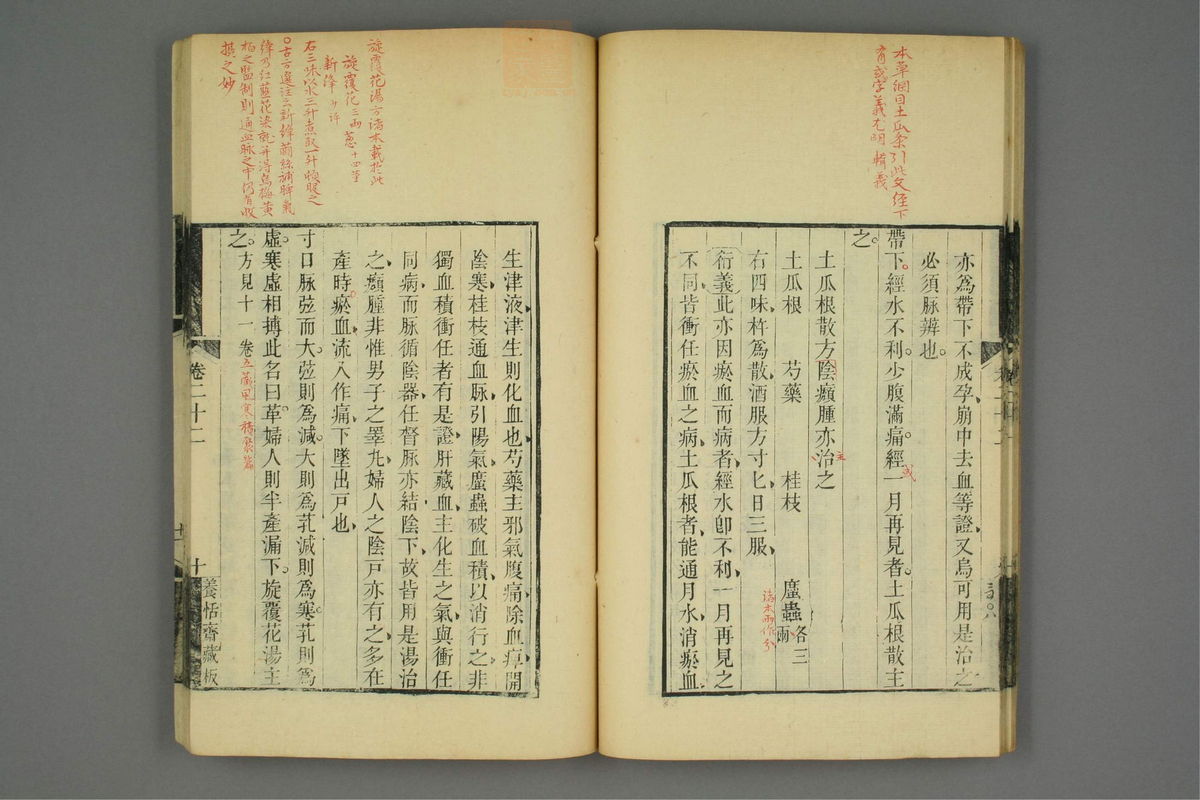 本草綱目土瓜条引此文經下
有或字義尤明 輯義
亦爲帶下不成孕崩中去血等證又烏可用是治之
必須脉辨也
帶下經水不利少腹滿痛經一月再見者土瓜根散主
或
之
土瓜根散方陰癩腫亦治之
主
土瓜根 芍藥 桂枝 䗪蟲各三兩
諸本兩作分
右四味杵爲散酒服方寸匕日三服
衍義此亦因瘀血而病者經水卽不利一月再見之
不同皆衝任瘀血之病土瓜根者能通月水消瘀血
旋覆花湯方諸本載於此
旋覆花三兩 葱十四莖
新絳少許
右三味以水三升煮取一升頓服之
○古方選注云新絳
緯乃紅藍花染就并得烏梅黃
之妙
生津液津生則化血也芍藥主邪氣腹痛除血痺開
陰寒桂枝通血脉引陽氣䗪蟲破血積以消行之非
獨血積衝任者有是證肝藏血主化生之氣與衝任
同病而脉循陰器任督脉亦結陰下故皆用是湯治
之癩腫非惟男子之睪丸婦人之陰戸亦有之多在
產時瘀血流入作痛下墜出戸也
寸口脉弦而大弦則爲減大則爲芤減則爲寒芤則爲
虛寒虛相搏此名曰革婦人則半產漏下旋覆花湯主
之方見十一卷五藏風寒積聚篇
卷二十二
十
養恬齋藏板